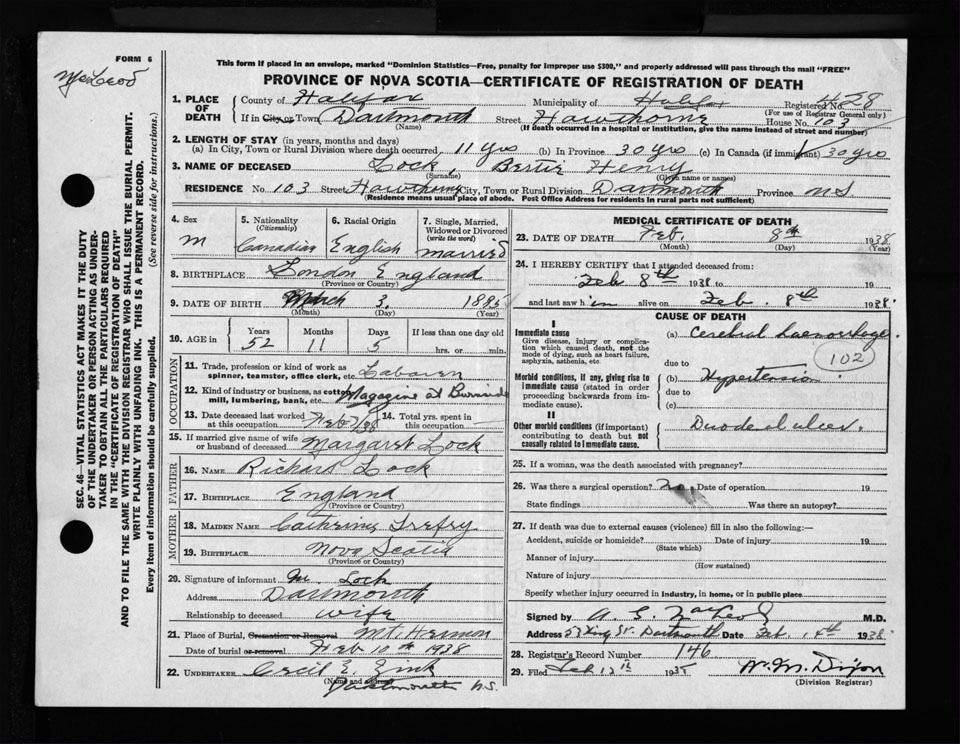 FORM 6
This form if placed in an envelope, marked "Dominion Statistics—Free, penalty for improper use $300," and properly addressed will pass through the mail "FREE"
PROVINCE OF NOVA SCOTIA—CERTIFICATE OF REGISTRATION OF DEATH
1. PLACE OF DEATH County of Halifax Municipality of Halifax Registered No. 428
(For use of Registrar General only)
If in City or Town Dartmouth Street Hawthorne House No. 103
(Name) (If death occurred in a hospital or institution, give the name instead of street and number)
2. LENGTH OF STAY (in years, months and days)
(a) In City, Town or Rural Division where death occurred, 11 yrs (b) In Province 30 yrs (c) In Canada (if immigrant) 30 yrs
3. NAME OF DECEASED Lock, Bertie Henry
(Surname) (Given name or names)
RESIDENCE No. 103 Street Hawthorne City, Town or Rural Division Dartmouth Province N S
(Residence means usual place of abode. Post Office Address for residents in rural parts not sufficient)
4. Sex 5. Nationality (Citizenship) 6. Racial Origin 7. Single, Married, Widowed or Divorced (write the word)
M Canadian English married
8. BIRTHPLACE London England
(Province or Country)
9. DATE OF BIRTH March 3, 1885
(Month) (Day) (Year)
10. AGE in Years Months Days If less than one day old
52 11 5 hrs. or min.
OCCUPATION
11. Trade, profession or kind of work as spinner, teamster, office clerk, etc.
12. Kind of industry or business, as cotton mill, lumbering, bank, etc. Magazine at Burnside
13. Date deceased last worked at this occupation Feb 14. Total yrs. spent in this occupation
15. If married give name of wife or husband of deceased Margaret Lock
FATHER
16. NAME Richard Lock
17. BIRTHPLACE England
(Province or Country)
MOTHER
18. MAIDEN NAME Catherine Trefry
19. BIRTHPLACE Nova Scotia
(Province or Country)
20. Signature of informant M. Lock
Address Dartmouth
Relationship to deceased wife
21. Place of Burial, Cremation or Removal Mt. Hermon
Date of burial or removal Feb 10th 1938
22. UNDERTAKER Cecil E. Zink
(Name and address)
Dartmouth N.S.
MEDICAL CERTIFICATE OF DEATH
23. DATE OF DEATH Feb. 8th 1938
(Month) (Day) (Year)
24. I HEREBY CERTIFY that I attended deceased from:
Feb 8th 1938 to 19
and last saw him alive on Feb. 8th 1938.
CAUSE OF DEATH
I
Immediate cause (a) Cerebral haemorrhage.
Give disease, injury or complication which caused death, not the mode of dying, such as heart failure, asphyxia, asthenia, etc.
due to 102
Morbid conditions, if any, giving rise to immediate cause (stated in order proceeding backwards from immediate cause).
(b) Hypertension
due to
(c)
II
Other morbid conditions (if important) contributing to death but not causally related to immediate cause.
Duodenal ulcer.
25. If a woman, was the death associated with pregnancy?
26. Was there a surgical operation? no Date of operation 19
State findings Was there an autopsy?
27. If death was due to external causes (violence) fill in also the following:—
Accident, suicide or homicide? Date of injury 19
(State which)
Manner of injury
(How sustained)
Nature of injury
Specify whether injury occurred in industry, in home, or in public place
Signed by M.D.
Address 57 King St. Dartmouth Date Feb. 1938.
28. Registrar's Record Number 146
29. Filed Feb 12th 193 W. M. Dixon
(Division Registrar)
SEC. 46—VITAL STATISTICS ACT MAKES IT THE DUTY
OF THE UNDERTAKER OR PERSON ACTING AS UNDER-
TAKER TO OBTAIN ALL THE PARTICULARS REQUIRED
IN THE "CERTIFICATE OF REGISTRATION OF DEATH"
AND TO FILE THE SAME WITH THE DIVISION REGISTRAR WHO SHALL ISSUE THE BURIAL PERMIT.
WRITE PLAINLY WITH UNFADING INK. THIS IS A PERMANENT RECORD.
Every item of information should be carefully supplied. (See reverse side for instructions.)